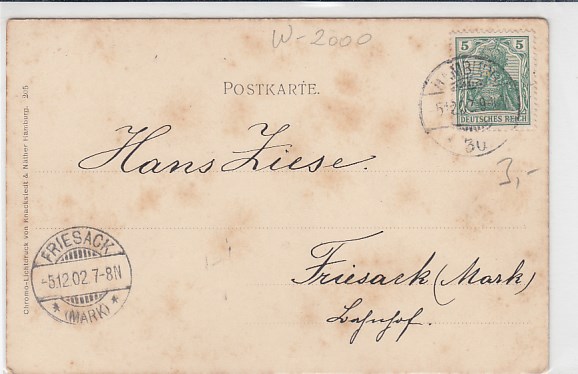 W-2000
5 5
DEUTSCHES REICH
HAMBURG
5.12.02.7-8N
30
3,-
POSTKARTE.
Hans Ziese.
Friesack (Mark)
Bahnhof.
FRIESACK
-5.12.02.7-8N
* (MARK) *
Chromo-Lichtdruck von Knackstedt & Näther Hamburg. 205